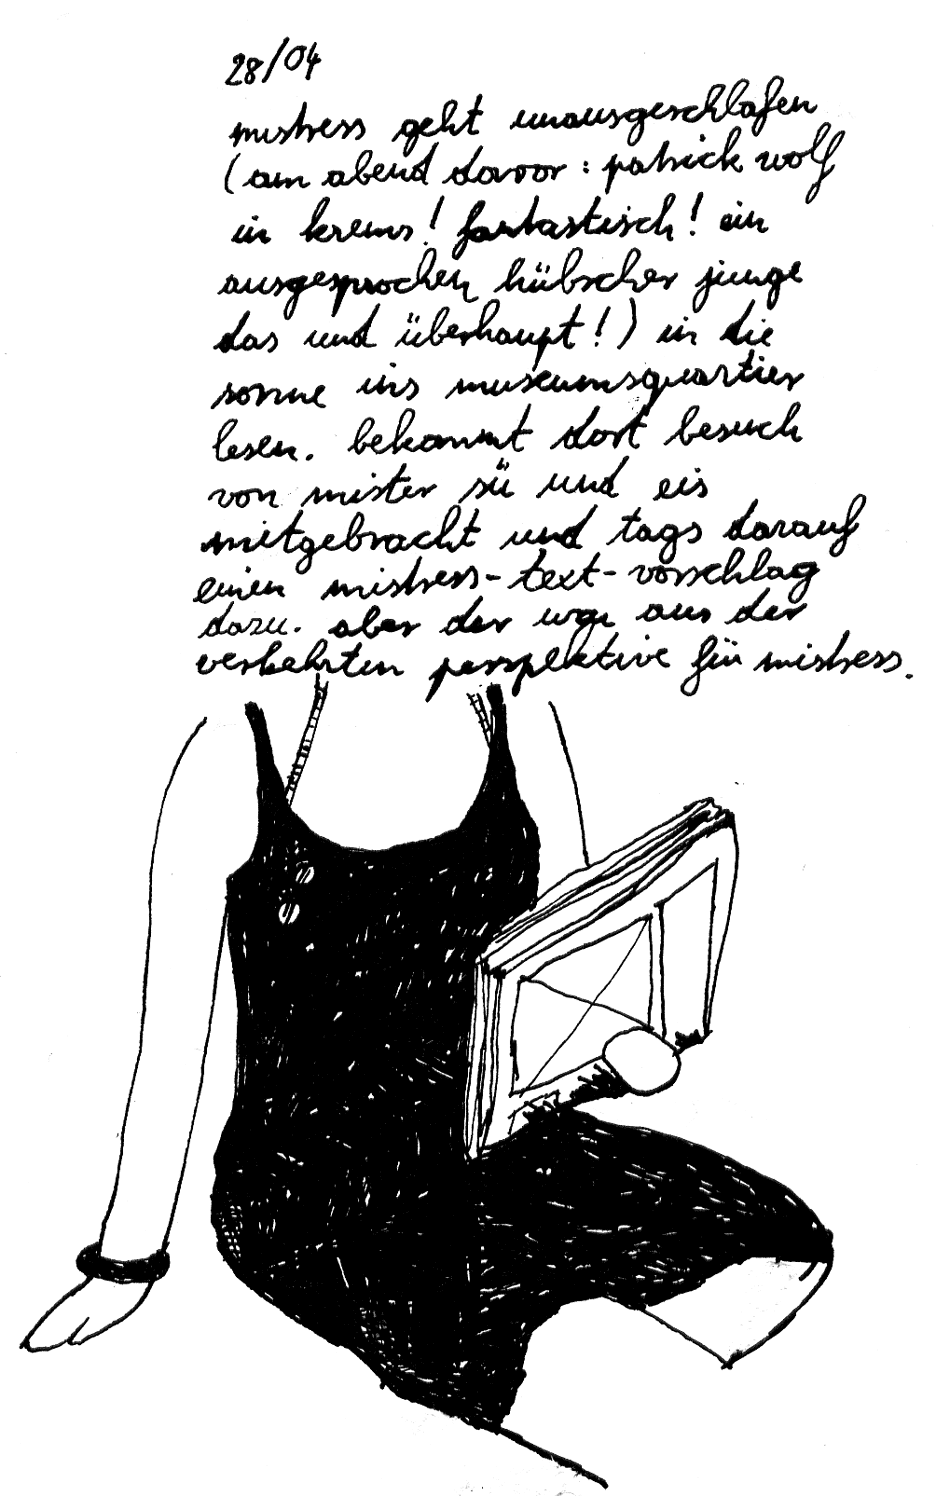 28/04
mistress geht unausgeschlafen
(am abend davor: patrick wolf
in krems! fantastisch! ein
ausgesprochen hübscher junge
das und überhaupt!) in die
sonne ins museumsquartier
lesen. bekommt dort besuch
von mister sü und eis
mitgebracht und tags darauf
einen mistress-text-vorschlag
dazu. aber der war aus der
verkehrten perspektive für mistress.